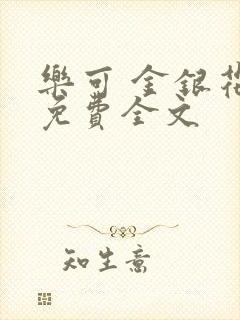 樂可 金銀花
免費全文
知生意